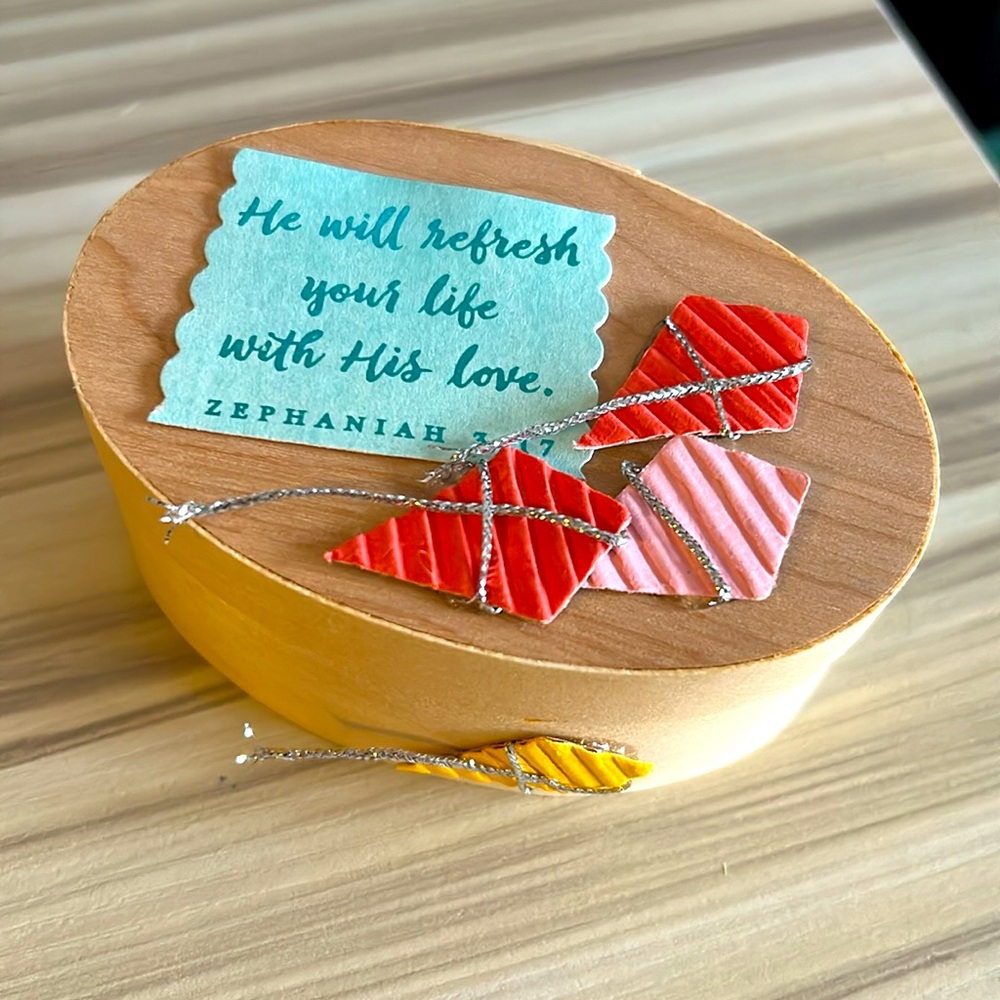 He will refresh
your life
with His love.
ZEPHANIAH 3:17